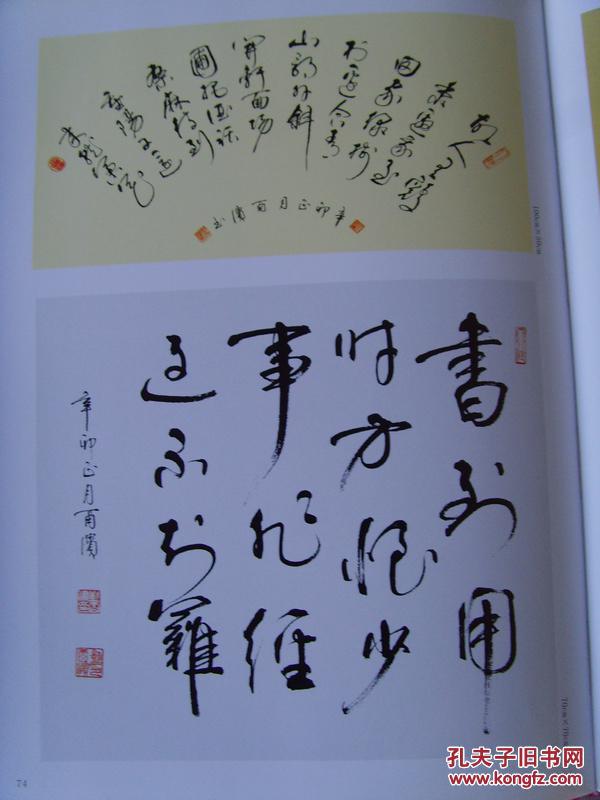 故人具鸡
黍邀我至
田家绿树
村边合青
山郭外斜
开轩面场
圃把酒话
桑麻待到
重阳日还
来就菊花
辛卯正月 濱书
100cm×50cm
書到用
时方恨少
事非经
过不知難
辛卯正月 濱
70cm×70cm
74
孔夫子旧书网
www.kongfz.com